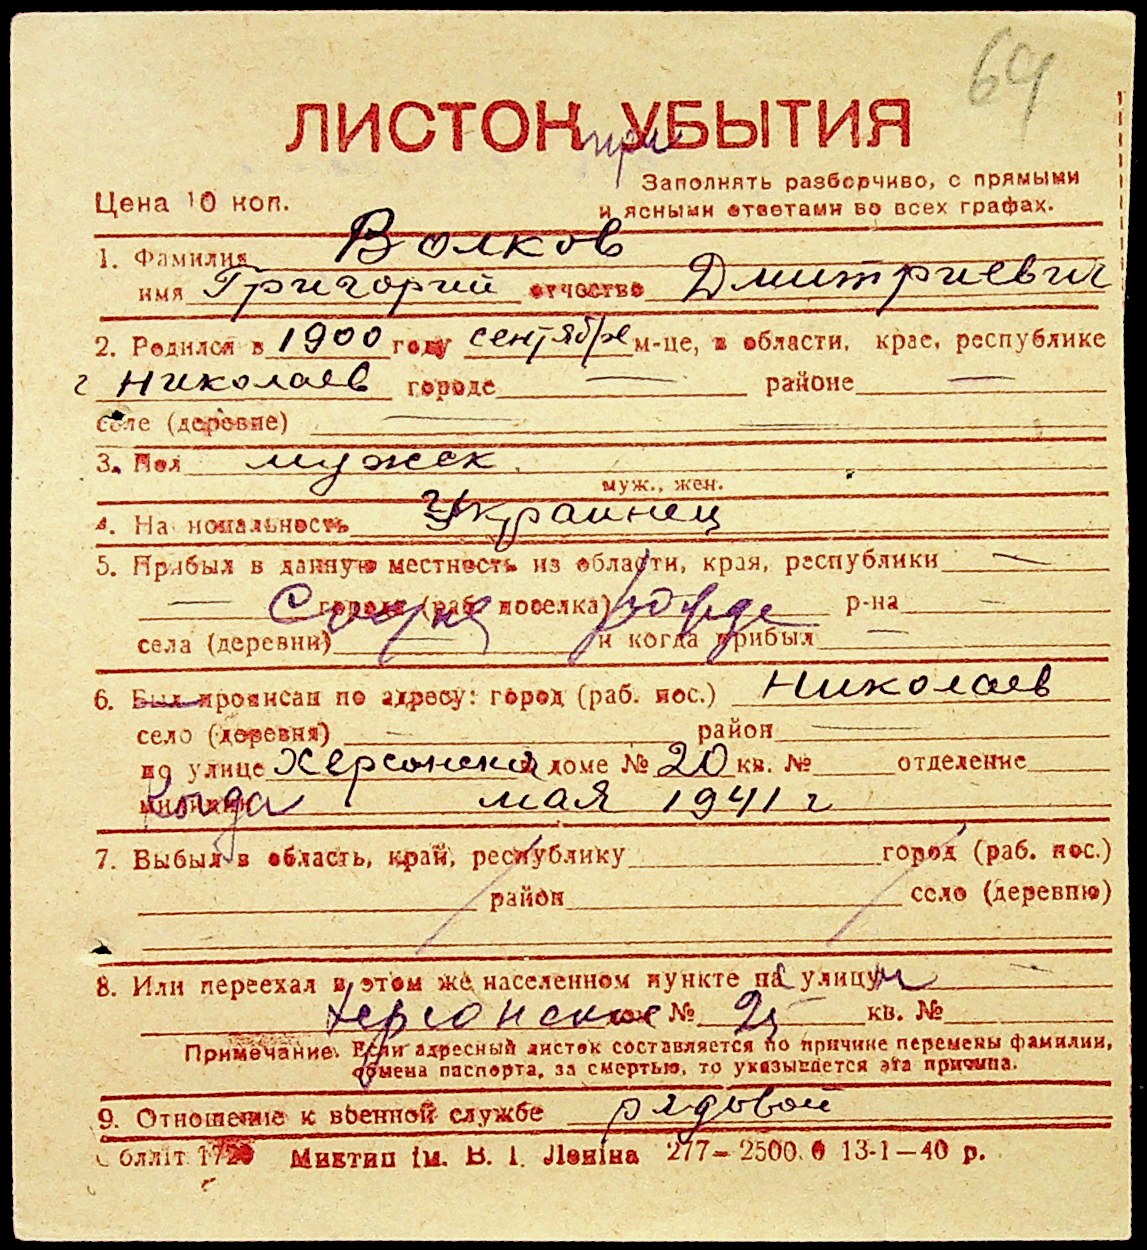 64
ЛИСТОК УБЫТИЯ
при
Цена 10 коп.
Заполнять разборчиво, с прямыми
и ясными ответами во всех графах.
1. Фамилия Волков
имя Григорий отчество Дмитриевич
2. Родился в 1900 году сентябре м-це, в области, крае, республике
г Николаев городе — районе —
селе (деревне) —
3. Пол мужск
муж., жен.
4. Национальность Украинец
5. Прибыл в данную местность из области, края, республики —
— города (раб. поселка) р-на —
села (деревни) — и когда прибыл —
6. Был прописан по адресу: город (раб. пос.) Николаев
село (деревня) — район —
по улице Херсонской доме № 20 кв. № отделение
милиции Когда мая 1941 г
7. Выбыл в область, край, республику город (раб. пос.)
район село (деревню)
8. Или переехал в этом же населенном пункте на улицу
Херсонское дом № кв. №
Примечание. Если адресный листок составляется по причине перемены фамилии,
обмена паспорта, за смертью, то указывается эта причина.
9. Отношение к военной службе рядовой
Миктип ім. В. І. Леніна 277— 2500. 13-1—40 р.